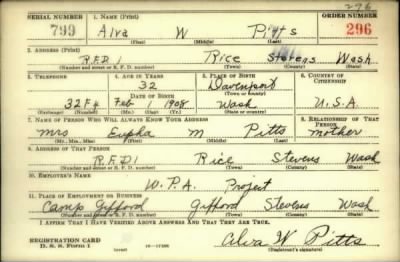 296
SERIAL NUMBER 1. NAME (Print) ORDER NUMBER
799 Alva W Pitts 296
(First) (Middle) (Last)
2. ADDRESS (Print)
R.F.D.1 Rice Stevens Wash
(Number and street or R. F. D. number) (Town) (County) (State)
3. TELEPHONE 4. AGE IN YEARS 5. PLACE OF BIRTH 6. COUNTRY OF CITIZENSHIP
32 Davenport
DATE OF BIRTH (Town or county)
32F4 Feb 1 1908 Wash U.S.A.
(Exchange) (Number) (Mo.) (Day) (Yr.) (State or country)
7. NAME OF PERSON WHO WILL ALWAYS KNOW YOUR ADDRESS 8. RELATIONSHIP OF THAT PERSON
Mrs M Pitts mother
(Mr., Mrs., Miss) (First) (Middle) (Last)
9. ADDRESS OF THAT PERSON
R.F.D1 Rice Stevens Wash
(Number and street or R. F. D. number) (Town) (County) (State)
10. EMPLOYER'S NAME
W.P.A. Project
11. PLACE OF EMPLOYMENT OR BUSINESS
Camp Gifford Gifford Stevens Wash
(Number and street or R. F. D. number) (Town) (County) (State)
I AFFIRM THAT I HAVE VERIFIED ABOVE ANSWERS AND THAT THEY ARE TRUE.
REGISTRATION CARD
D. S. S. Form 1 (over) 16-17105 Alva W Pitts
(Registrant's signature)